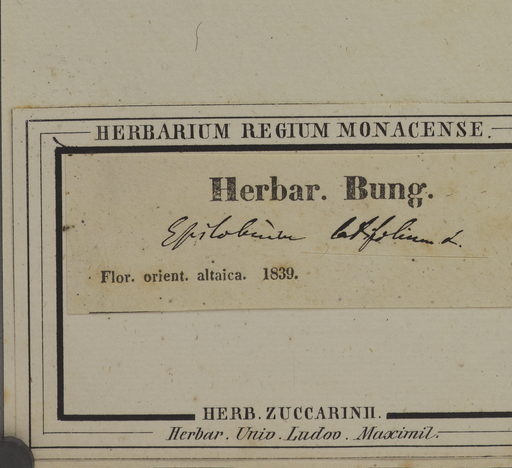 HERBARIUM REGIUM MONACENSE.
Herbar. Bung.
Epilobium latifolium L.
Flor. orient. altaica. 1839.
HERB. ZUCCARINII.
Herbar. Univ. Ludov. Maximil.